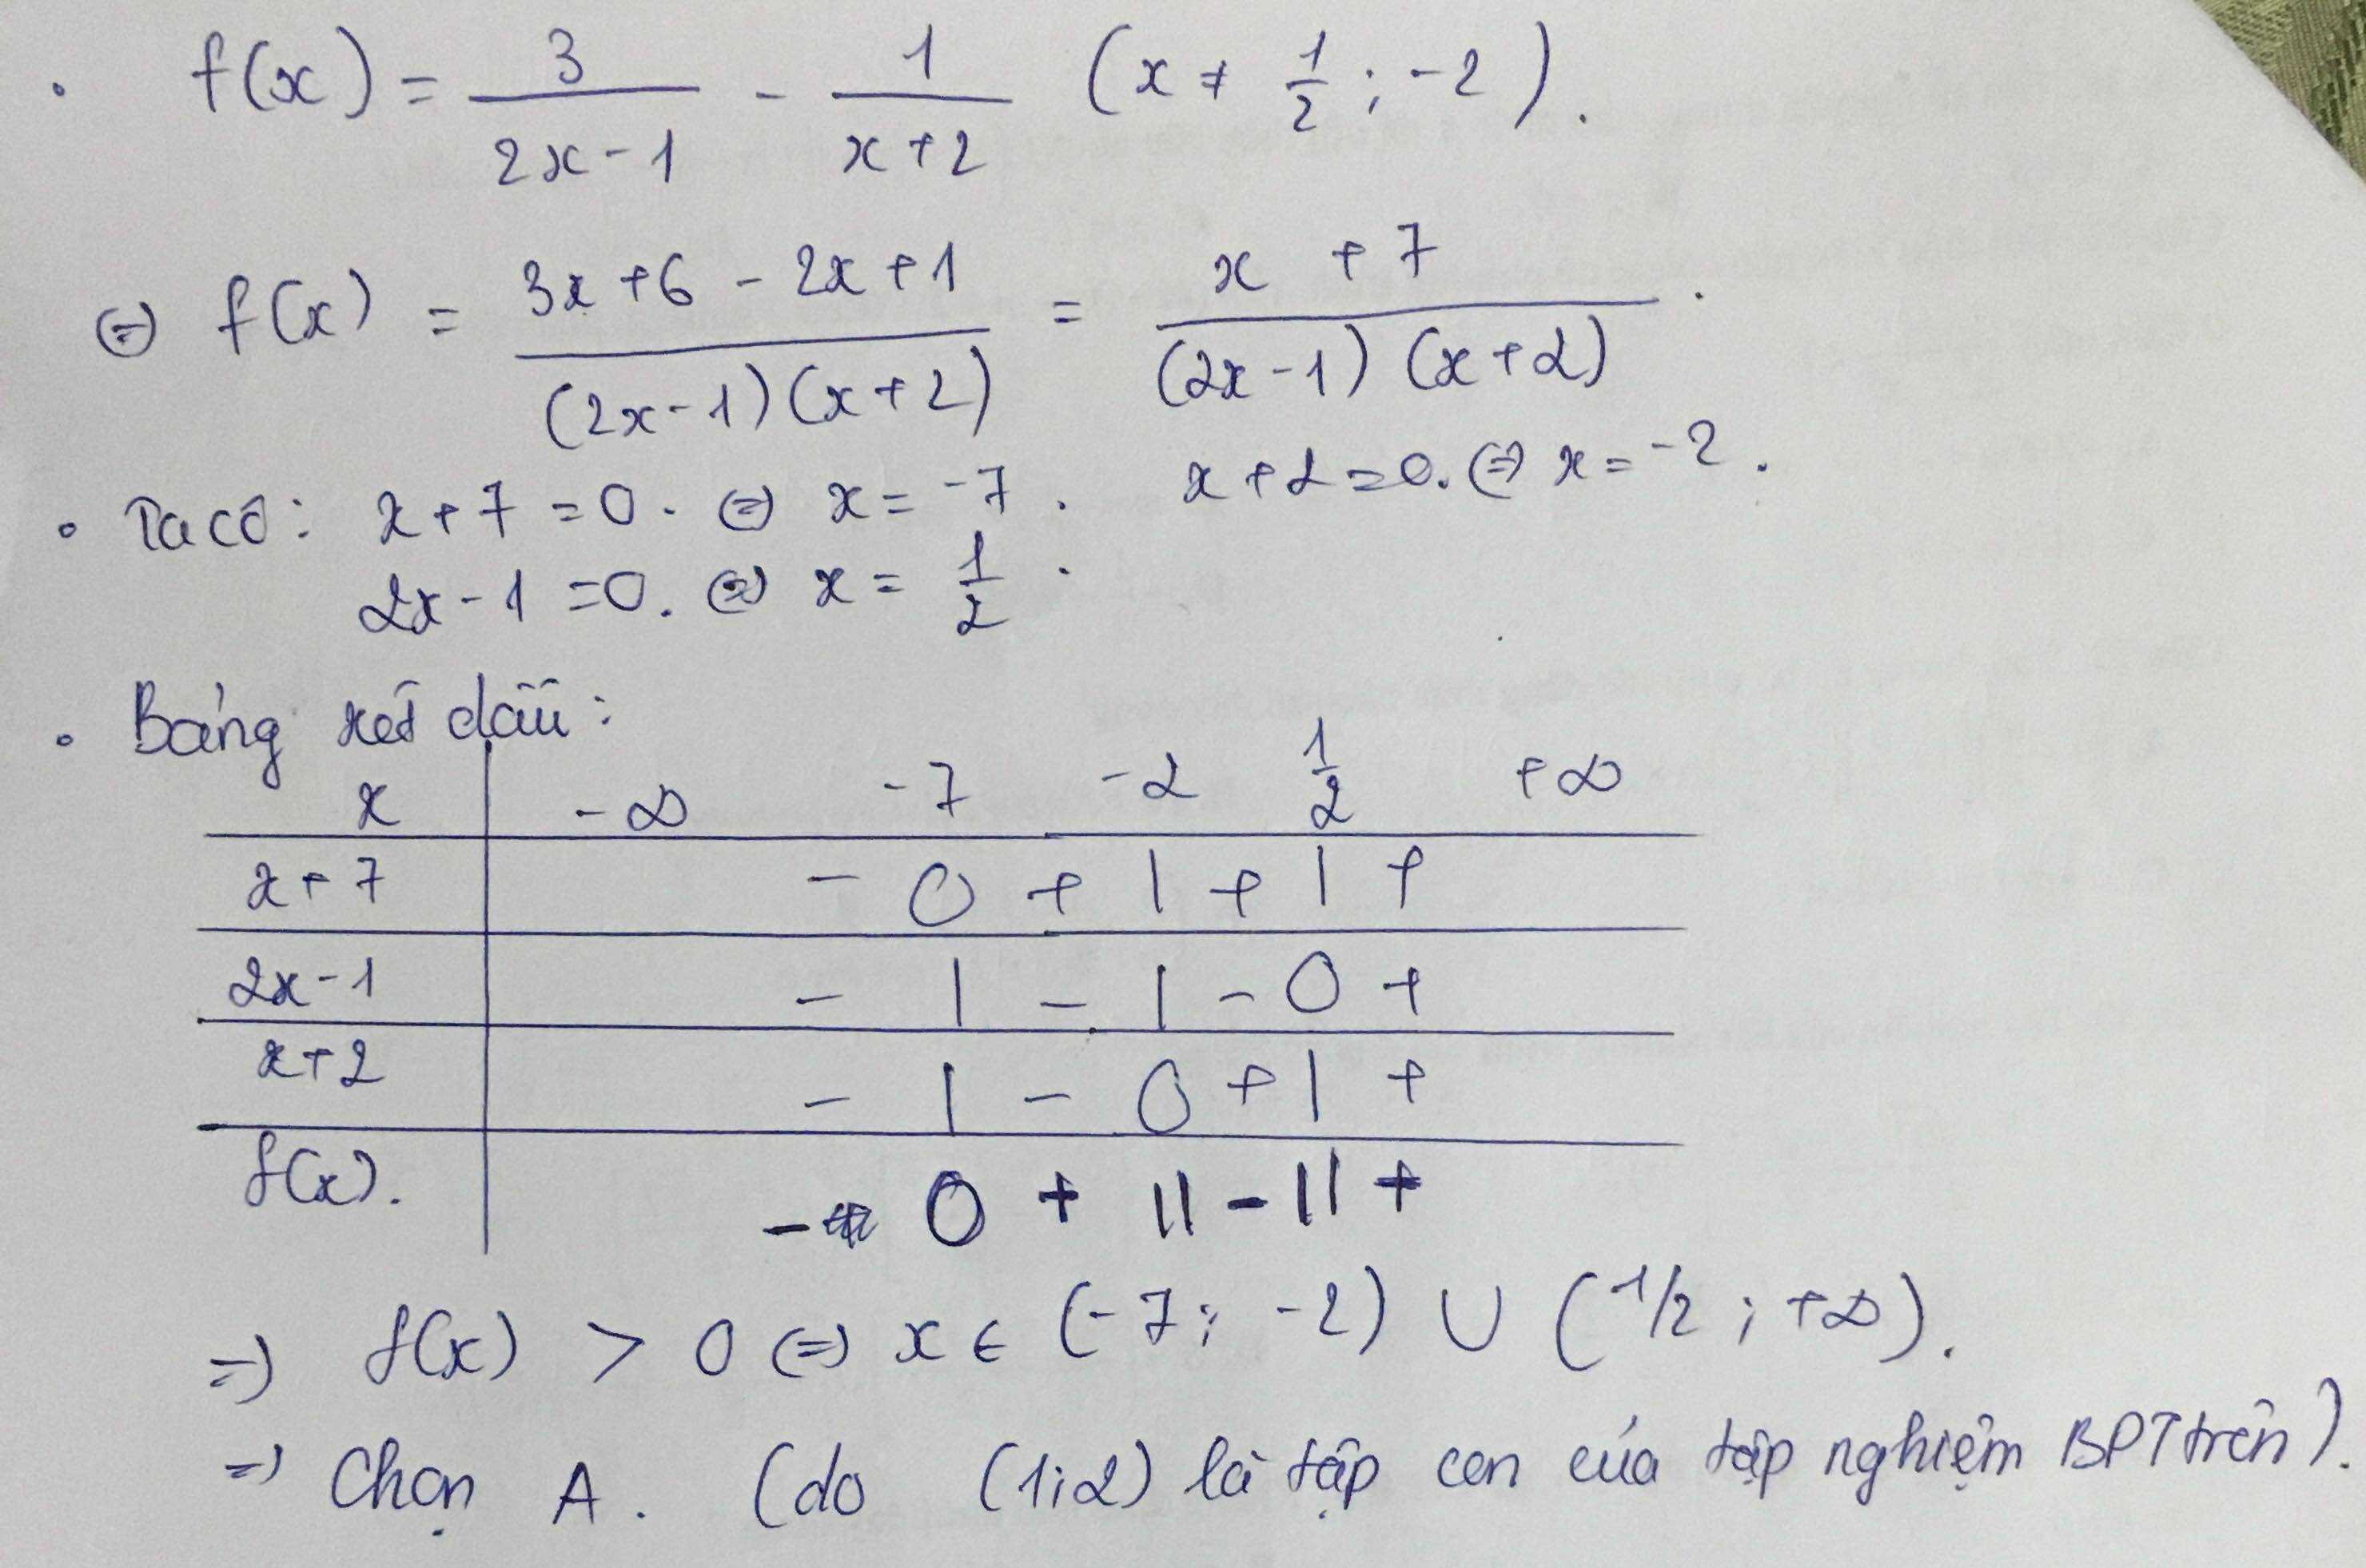 • f(x) = 3/(2x-1) - 1/(x+2) (x ≠ 1/2 ; -2).
⇔ f(x) = (3x+6-2x+1)/((2x-1)(x+2)) = (x+7)/((2x-1)(x+2)).
• Ta có: x+7=0. ⇔ x = -7. x+2=0. ⇔ x = -2.
2x-1=0. ⇔ x = 1/2.
• Bảng xét dấu:
x | -∞ -7 -2 1/2 +∞
x+7 | - 0 + | + | +
2x-1 | - | - | - 0 +
x+2 | - | - 0 + | +
f(x). | - 0 + || - || +
⇒ f(x) > 0 ⇔ x ∈ (-7; -2) ∪ (1/2 ; +∞).
⇒ Chọn A. (do (1;2) là tập con của tập nghiệm BPT trên).